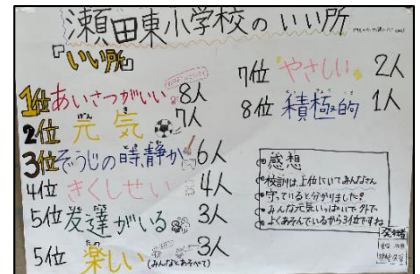 瀬田東小学校のいい所
『いい所』
1位あいさつがいい 8人
2位 元気 7人
3位そうじの時、静か 6人
4位 きくしせい 4人
5位 友達がいる 3人
5位 楽しい(みんなとあそべて) 3人
7位 やさしい 2人
8位 積極的 1人
感想
校訓は上位にいてみんなさん
守っていると分かりました。
みんな元気いっぱいで外で
よくあそんでいるから3位ですね